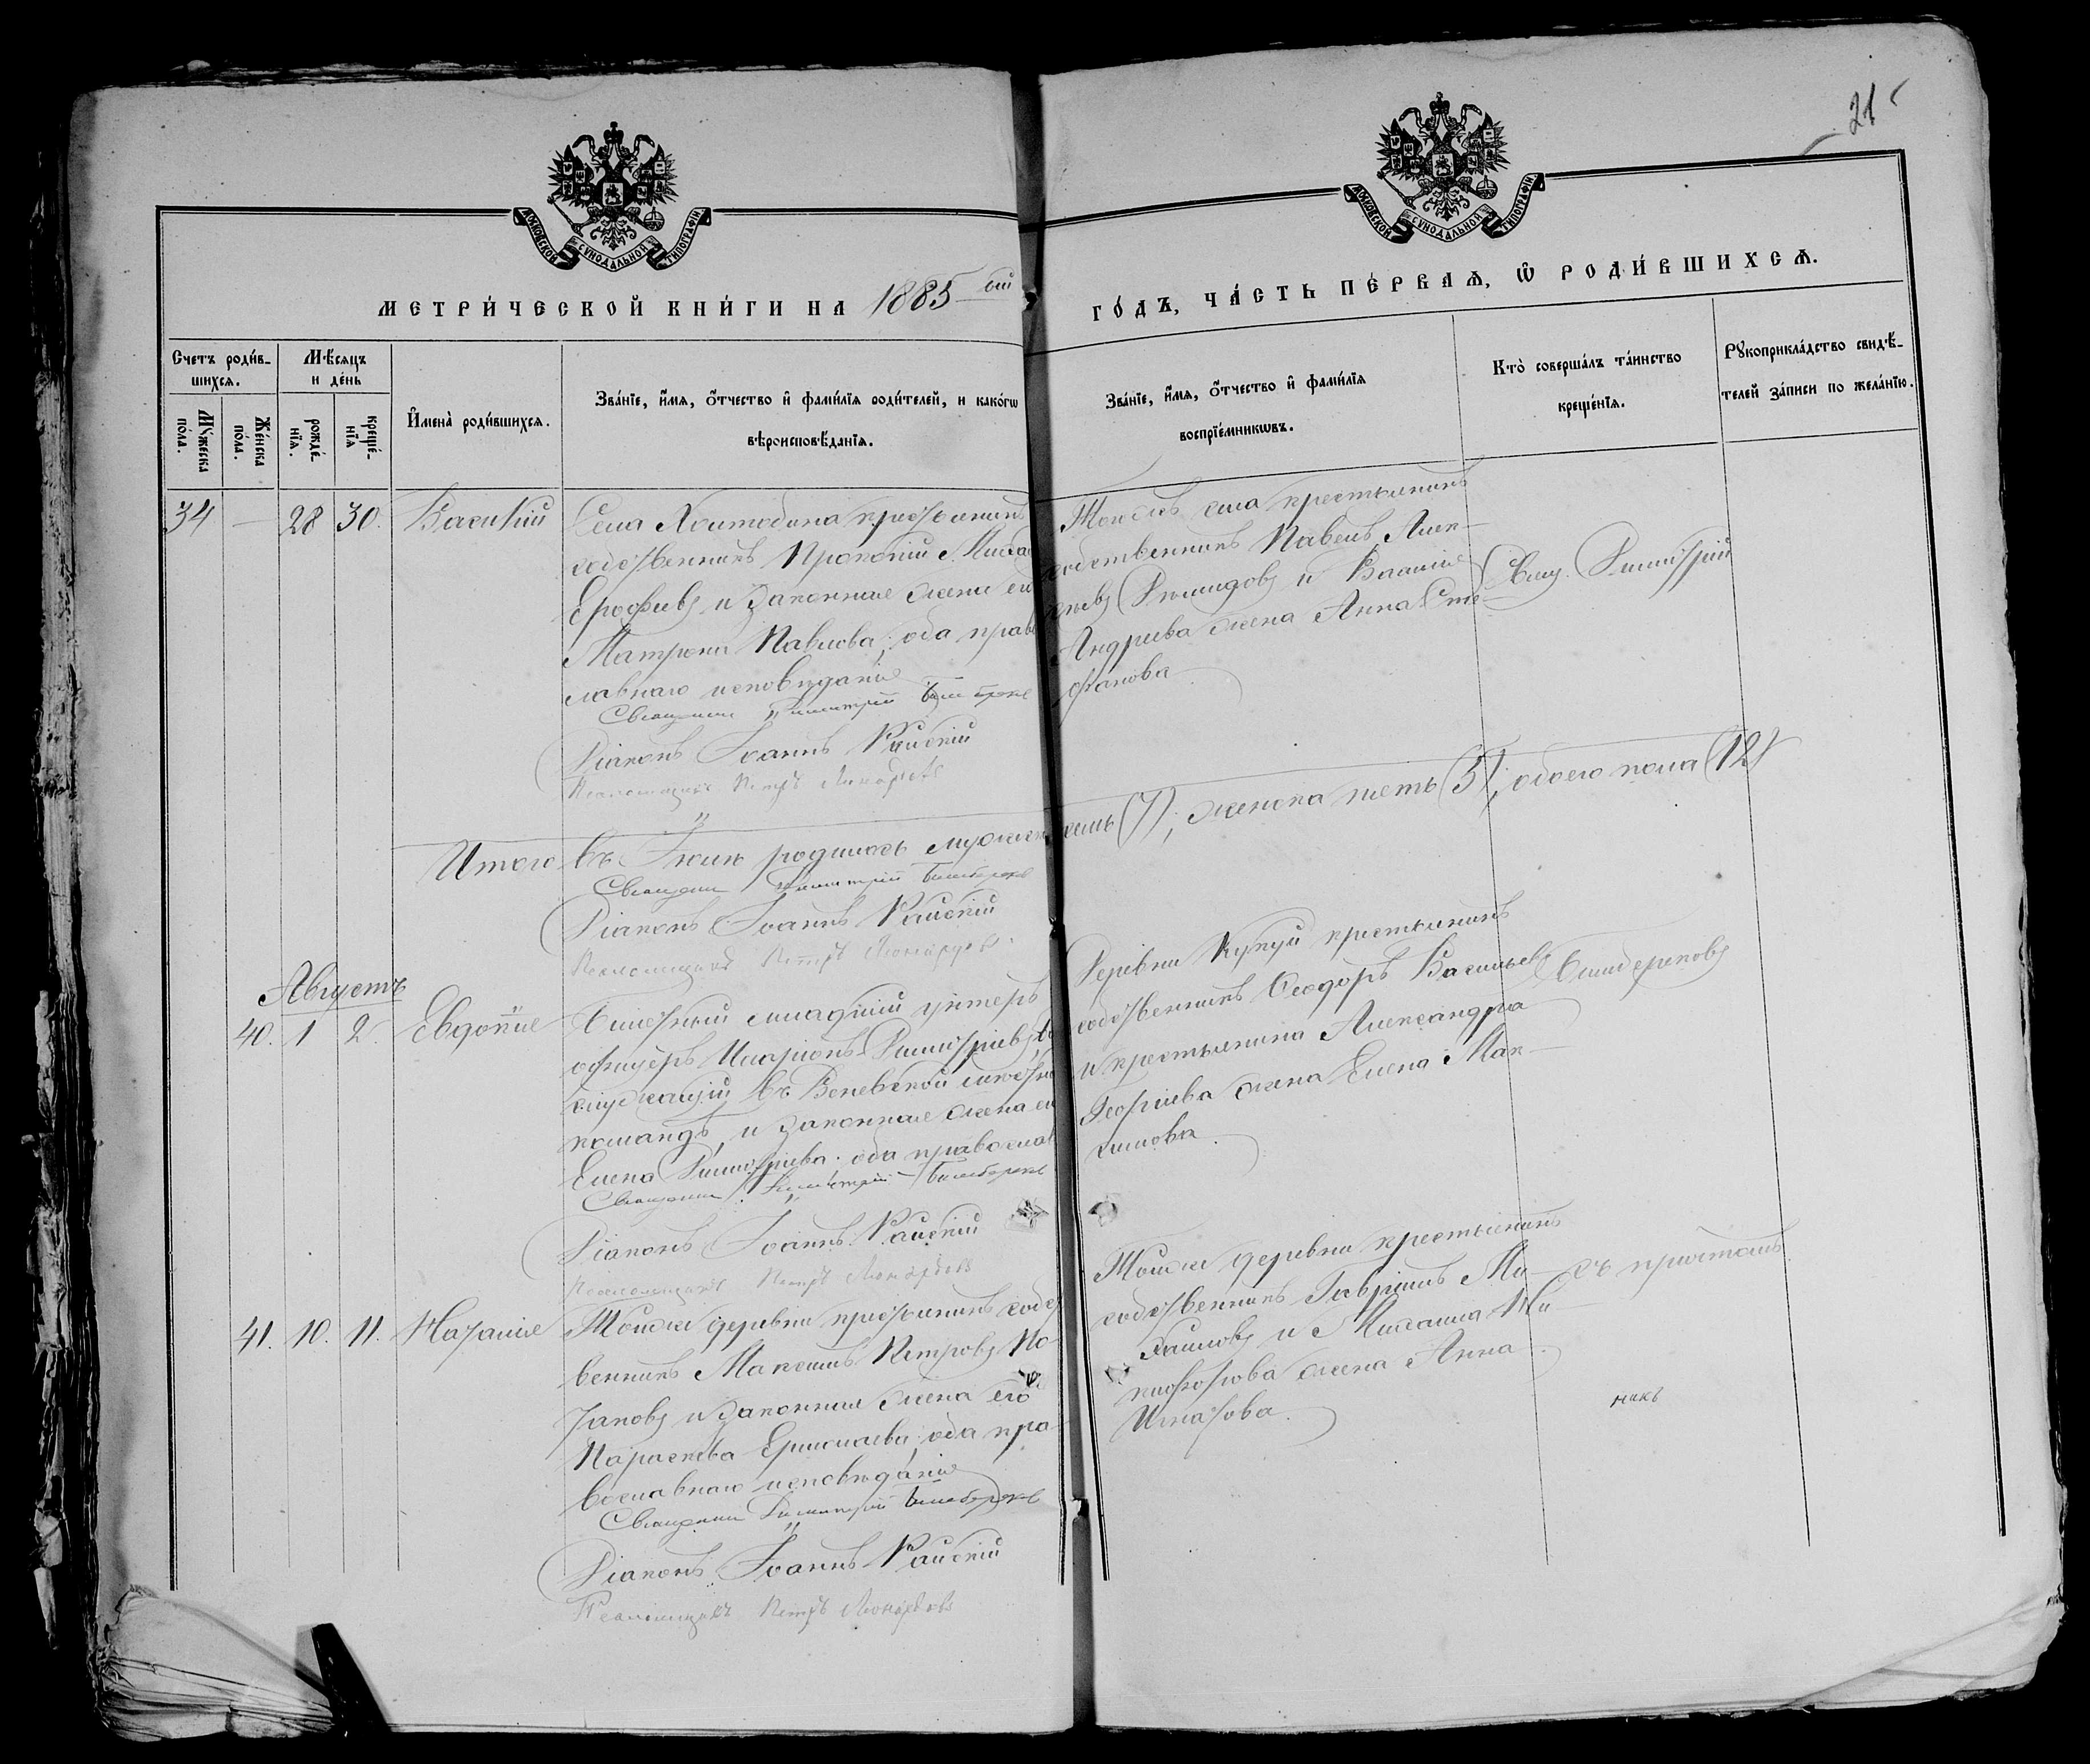 21
МОСКОВСКОЙ СУНОДАЛЬНОЙ ТИПОГРАФІИ
МОСКОВСКОЙ СУНОДАЛЬНОЙ ТИПОГРАФІИ
МЕТРИ́ЧЕСКОЙ КНИ́ГИ НА 1885 ый
ГО́ДЪ, ЧА́СТЬ ПЕ́РВАѦ, Ѡ҆ РОДИ́ВШИХСѦ.
Счетъ роди́в-
шихсѧ.
Мѣ́сяцъ
и де́нь
Мꙋ́жеска
по́ла.
Же́нска
по́ла.
рожде́-
нїѧ.
креще́-
нїѧ
И҆мена̀ роди́вшихсѧ.
Зва́нїе, и҆́мѧ, ѻ҆́тчество и҆ фами́лїѧ роди́телей, и како́гѡ
вѣроисповѣ́данїѧ.
Зва́нїе, и҆́мѧ, ѻ҆́тчество и҆ фами́лїѧ
воспрїе́мникѡвъ.
Кто̀ соверша́лъ та́инство
креще́нїѧ.
Рꙋкоприкла́дство свидѣ́-
телей за́писи по жела́нїю.
34 — 28 30. Василій
крестьянинъ
собственникъ Прокопій
Ерофеевъ и законная жена его
Матрона Павлова; оба право
славнаго исповѣданія
Священникъ Димитрій
Діаконъ Іоаннъ Райскій
Псаломщикъ Петръ
Тогоже села крестьянинъ
собственникъ Павелъ Алек-
Демидовъ и Василія
Андреева жена Анна Сте-
фанова
Свящ. Димитрій
Итого въ Іюлѣ родилось мужеска семь (7), женска пять (5), обоего пола (12)
Священникъ Димитрій
Діаконъ Іоаннъ Райскій
Псаломщикъ Петръ
Августъ
40. 1 2. Евдокія
младшій унтеръ
офицеръ Иларіонъ Димитріевъ,
служащій въ Веневской
командѣ, и законная жена его
Елена Димитріева; оба православ
Священникъ Димитрій
Діаконъ Іоаннъ Райскій
Псаломщикъ Петръ
Деревни крестьянинъ
собственникъ Ѳеодоръ Васильевъ
и крестьянина Александра
Георгіева жена Елена Мак-
симова.
41. 10. 11. Наталія
Тойже деревни крестьянинъ собст
венникъ Максимъ Петровъ По-
таповъ и законная жена его
Параскева Ермолаева; оба пра-
вославнаго исповѣданія
Священникъ Димитрій
Діаконъ Іоаннъ Райскій
Псаломщикъ Петръ
Тойже деревни крестьянинъ
собственникъ Гавріилъ Ми-
хайловъ и Михаила Ни
кифорова жена Анна
Игнатова.
съ причтомъ